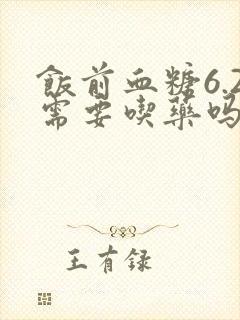 飯前血糖6.2
需要喫藥吗
王有録